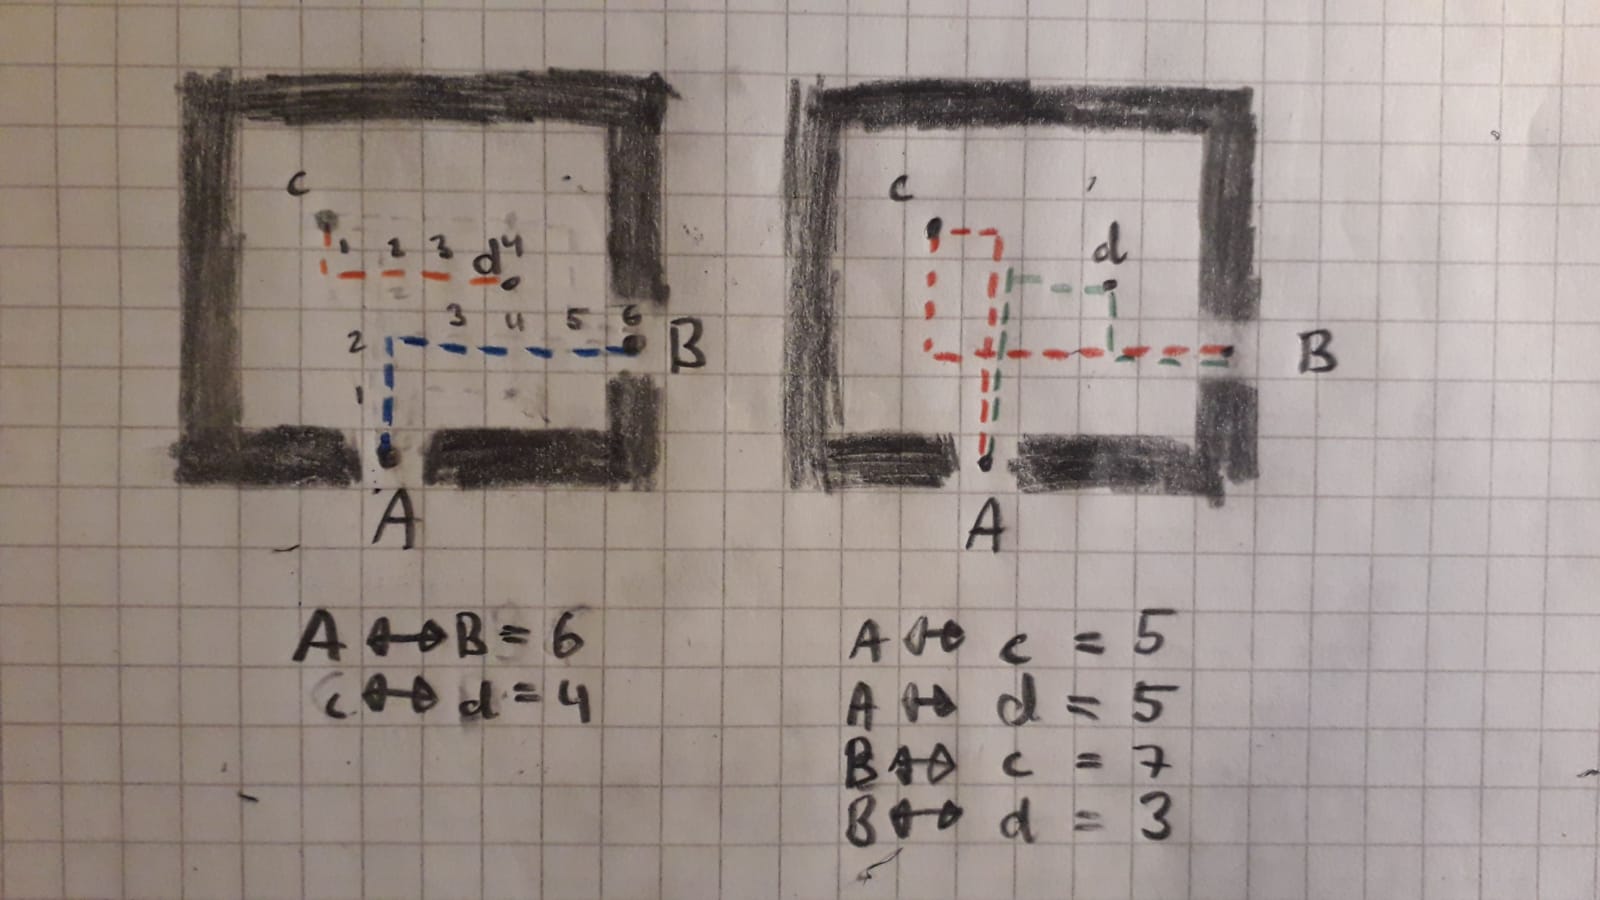 c
1 2 3 d 4
2
2 3 4 5 6 B
1
A
A ↔ B = 6
c ↔ d = 4
c
d
B
A
A ↔ c = 5
A ↔ d = 5
B ↔ c = 7
B ↔ d = 3